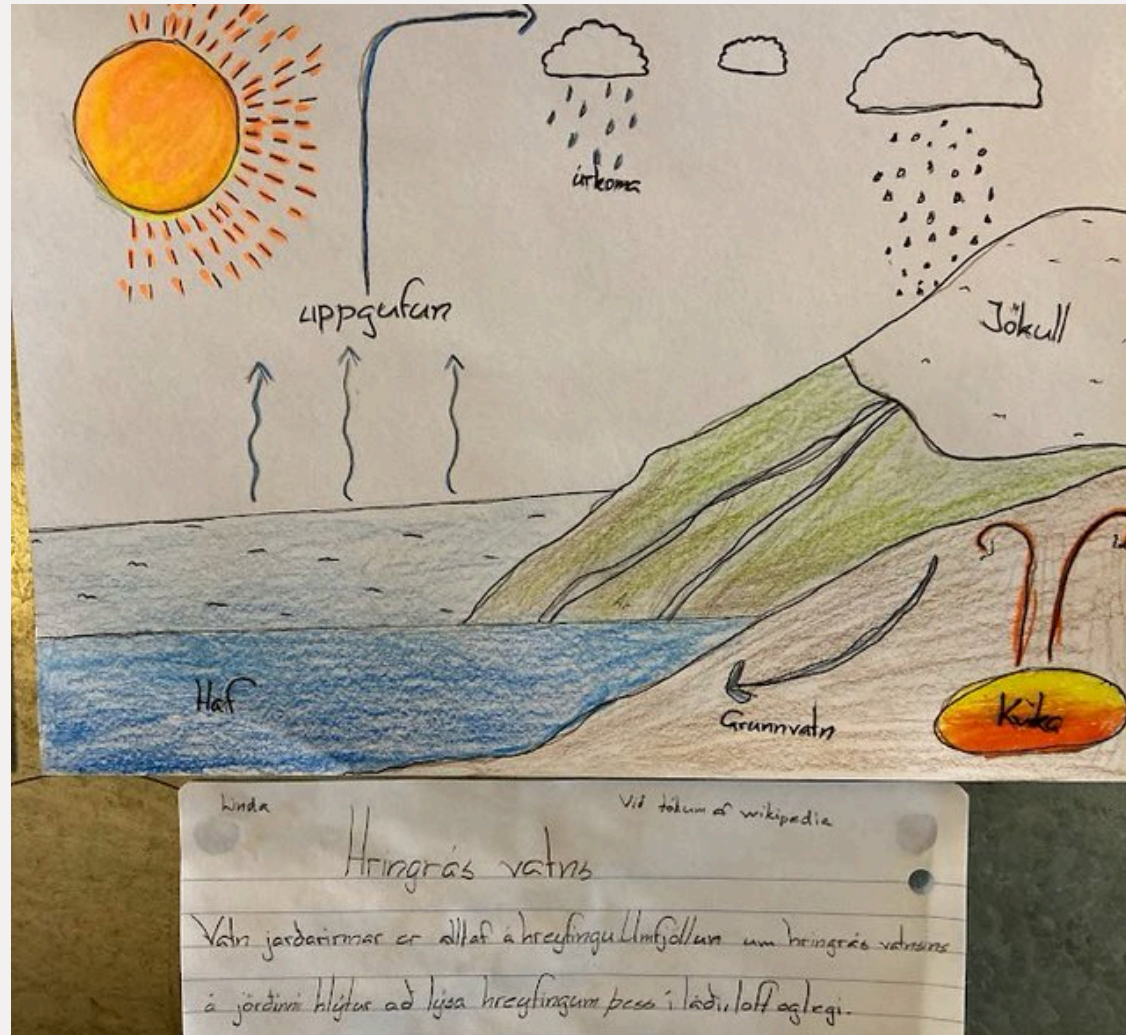 úrkoma
uppgufun
Jökull
Haf
Grunnvatn
Kvika
Linda
Við tökum af wikipedia
Hringrás vatns
Vatn jarðarinnar er alltaf á hreyfingu Umfjöllun um hringrás vatnsins
á jörðinni hlýtur að lýsa hreyfingum þess í láði, loft og legi.